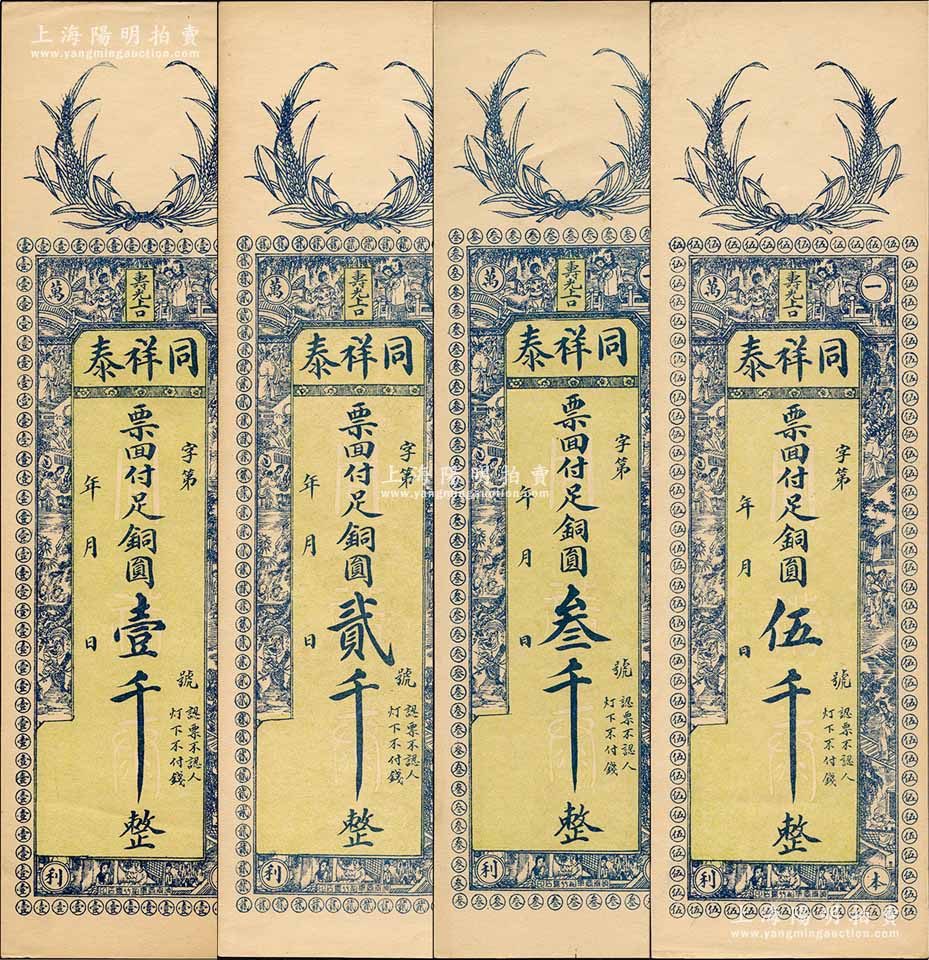 上海陽明拍賣
www.yangmingauction.com
萬
壽光古
同祥泰
字第
號
票面付足銅圓壹千整
年月日
認票不認人
灯下不付錢
利
萬
壽光古
同祥泰
字第
號
票面付足銅圓貳千整
年月日
認票不認人
灯下不付錢
利
萬
壽光古
同祥泰
字第
號
票面付足銅圓叁千整
年月日
認票不認人
灯下不付錢
利
一
萬
壽光古
同祥泰
字第
號
票面付足銅圓伍千整
年月日
認票不認人
灯下不付錢
本
利
上海陽明拍賣
www.yangmingauction.com
上海陽明拍賣
www.yangmingauction.com